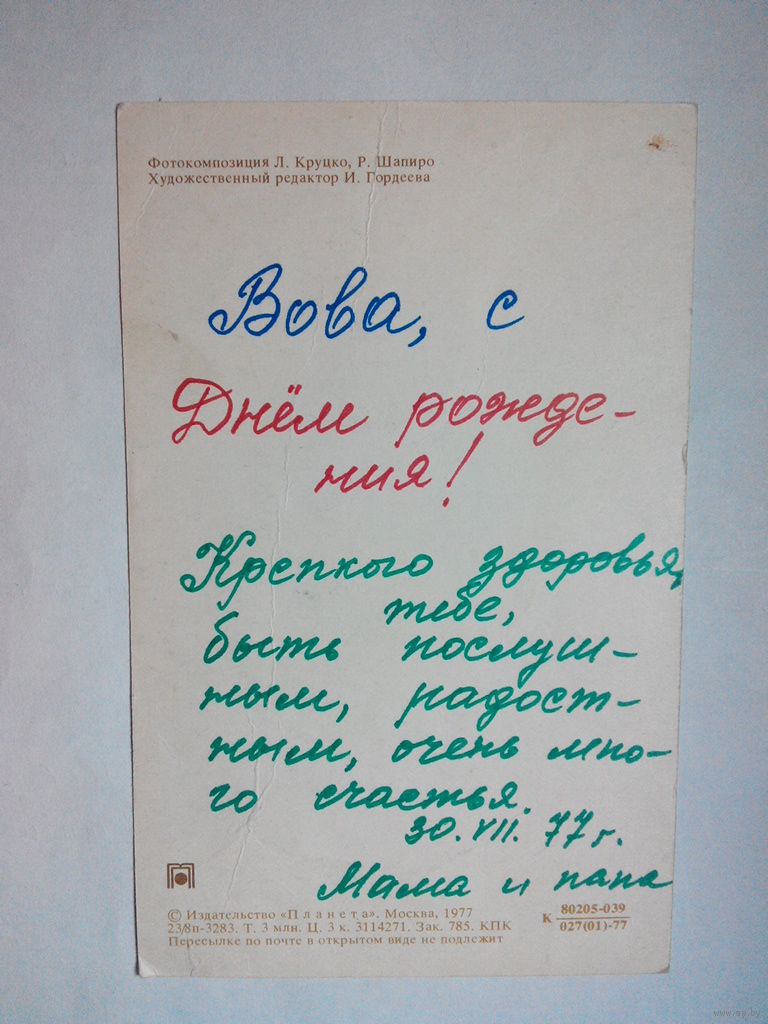 Фотокомпозиция Л. Круцко, Р. Шапиро
Художественный редактор И. Гордеева
Вова, с
Днём рожде-
ния!
Крепкого здоровья,
тебе,
быть послуш-
ным, радост-
ным, очень мно-
го счастья.
30.VII. 77 г.
Мама и папа
© Издательство «Планета». Москва, 1977
23/8п-3283. Т. 3 млн. Ц. 3 к. 3114271. Зак. 785. КПК
Пересылке по почте в открытом виде не подлежит
К 80205-039
027(01)-77